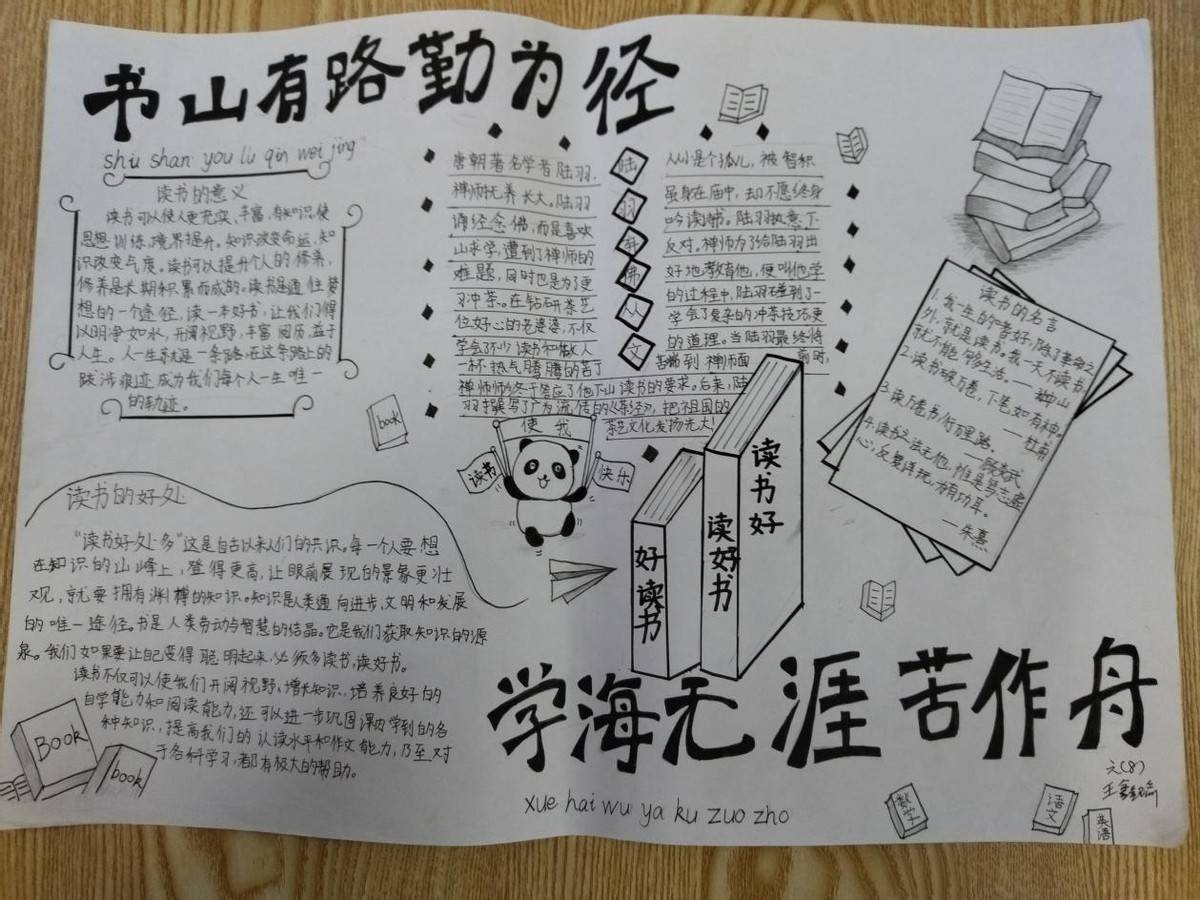 书山有路勤为径
shu shan you lu qin wei jing
读书的意义
读书可以使人更充实、丰富,有知识,使
思想训练,境界提升。知识改变命运,知
识改变气度。读书可以提升个人的修养,
修养是长期积累而成的。读书是通往梦
想的一个途径,读一本好书,让我们得
以明净如水,开阔视野,丰富阅历,益于
人生。人一生就是一条路,在这条路上的
跋涉痕迹成为我们每个人一生唯一
的轨迹。
book
唐朝著名学者陆羽,
禅师抚养长大。陆羽
诵经念佛,而是喜欢
山求学,遭到了禅师的
难题,同时也是为了更
习冲茶。在钻研茶艺
位好心的老婆婆,不仅
学会了不少读书和做人
一杯热气腾腾的苦丁
陆
羽
弃
佛
从
文
从小是个孤儿,被智积
虽身在庙中,却不愿终身
吟读诗书。陆羽执意下
反对。禅师为了给陆羽出
好地教育他,便叫他学
的过程中,陆羽碰到了一
学会了复杂的冲茶技巧,更
的道理。当陆羽最终将
茶端到禅师面前时,
禅师师终于答应了他下山读书的要求。后来,陆
羽撰写了广为流传的《茶经》,把祖国的
茶艺文化发扬光大!
读书的名言
1.我一生的嗜好,除了革命之
外,就是读书。我一天不读书,
就不能够生活。——孙中山
2.读书破万卷,下笔如有神。
——杜甫
3.读万卷书,行万里路。
4.读书之法无他,惟是笃志虚
心,反复详玩,为有功耳。
——朱熹
读书
使我
快乐
好读书
读好书
读书好
读书的好处
“读书好处多”这是自古以来人们的共识。每一个人要想
在知识的山峰上,登得更高,让眼前展现的景象更壮
观,就要拥有渊博的知识。知识是人类通向进步,文明和发展
的唯一途径。书是人类劳动与智慧的结晶。它是我们获取知识的源
泉。我们如果要让自己变得聪明起来,必须多读书,读好书。
读书不仅可以使我们开阔视野,增长知识,培养良好的
自学能力和阅读能力,还可以进一步巩固课内学到的各
种知识,提高我们的认读水平和作文能力,乃至对
于各科学习,都有极大的帮助。
BOOK
book
学海无涯苦作舟
xue hai wu ya ku zuo zho
六(8)
数学
语文
英语